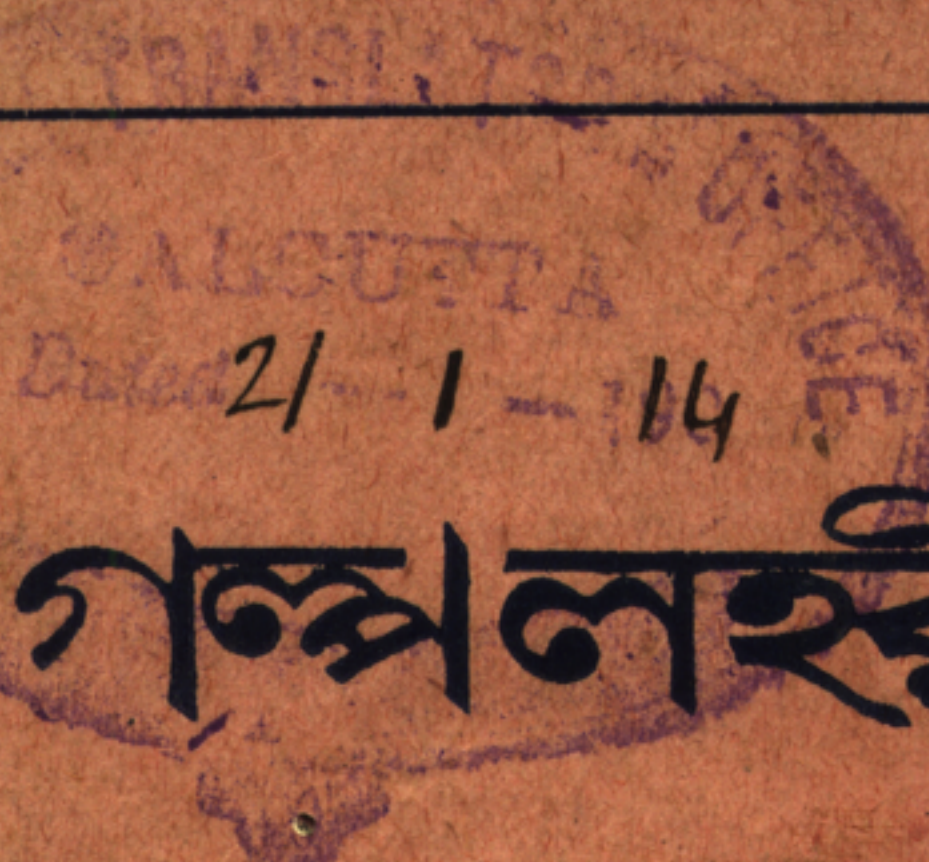 TRANSLATOR
OFFICE
CALCUTTA
Dated 21 - 1 - 14
গল্পলহরী